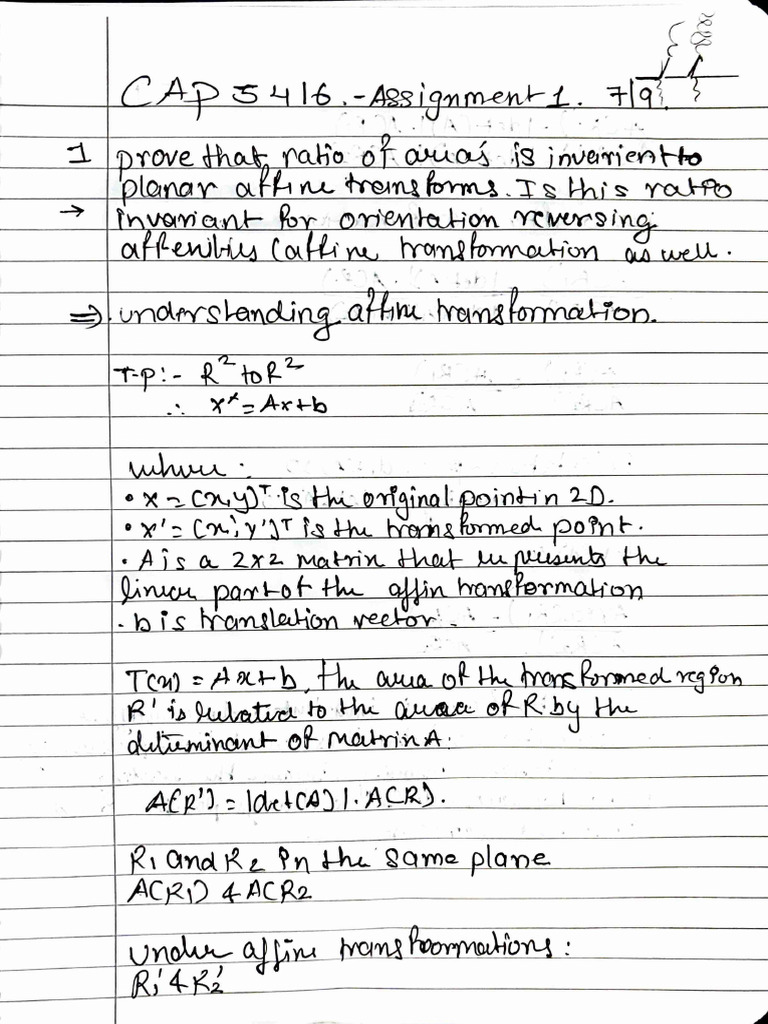 CAP 5416. - Assignment 1. 7/9
1 prove that ratio of area's is invarient to
planar affine transforms. Is this ratio
→ invariant for orientation reversing
affenities (affine transformation as well.
⇒ understanding affine transformation.
T-p:- R² to R²
∴ x* = Ax+b
where :
• x = (x,y)ᵀ is the original point in 2D.
• x' = (x',y')ᵀ is the transformed point.
• A is a 2x2 matrix that represents the
linear part of the affin transformation
• b is translation vector.
T(x) = Ax+b, the area of the transformed region
R' is related to the area of R by the
determinant of matrix A.
A(R') = |det(A)|. A(R).
R₁ and R₂ in the same plane
A(R₁) & A(R2
under affine transformations :
R₁' & R₂'